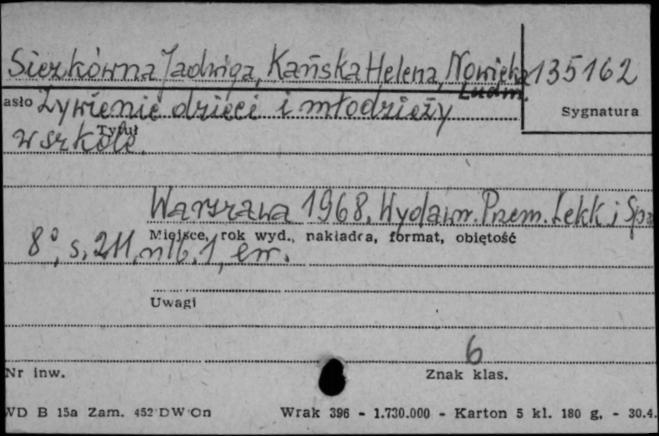 Siezkówna Jadwiga, Kańska Helena, Nowicka 135162
Ludm.
asło Żywienie dzieci i młodzieży
Sygnatura
Tytuł
w szkole.
Warszawa 1968. Wydawn. Przem. Lekk. i Spo
Miejsce, rok wyd., nakładca, format, objętość
8°, s. 211, nlb. 1, err.
Uwagi
6
Nr inw. Znak klas.
WD B 15a Zam. 452 DW Cn Wrak 396 - 1.730.000 - Karton 5 kl. 180 g. - 30.4.